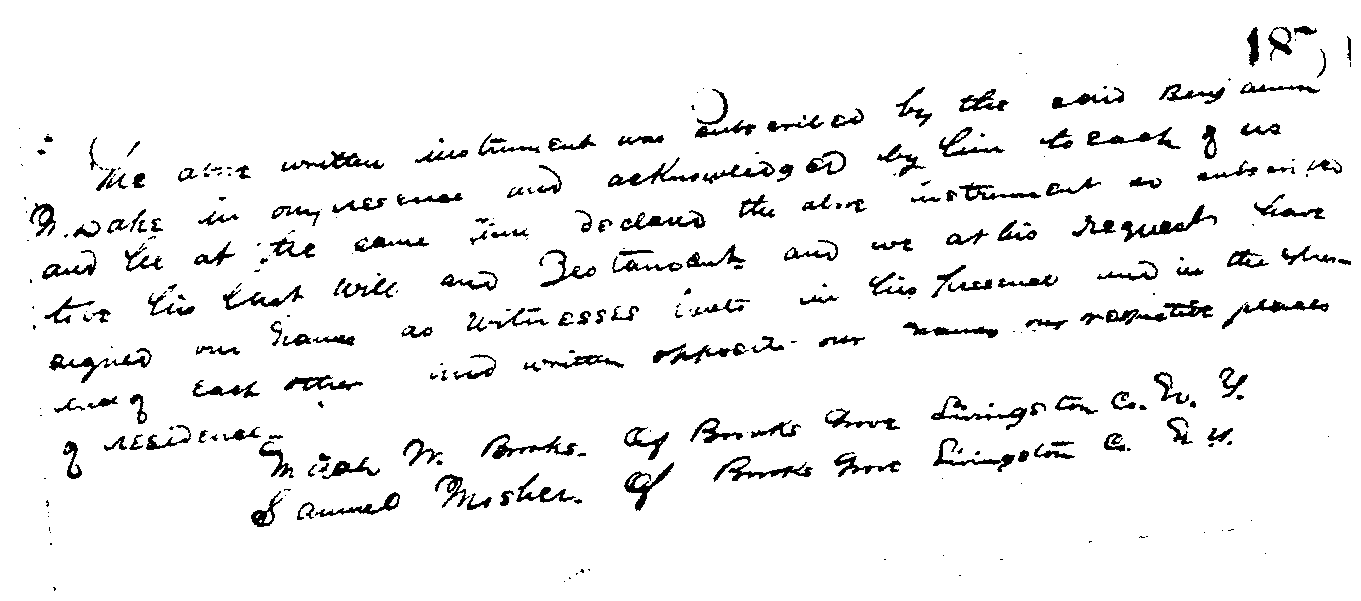 187
The above written instrument was subscribed by the said Benjamin
W. Wake in our presence and acknowledged by him to each of us
and he at the same time declared the above instrument so subscribed
to be his last Will and Testament and we at his request have
signed our names as Witnesses hereto in his presence and in the presen
ence of each other and written opposite our names our respective places
of residence.
W. Brooks. Of Brooks Grove Livingston Co. N. Y.
Samuel Mosher. Of Brooks Grove Livingston Co. N. Y.